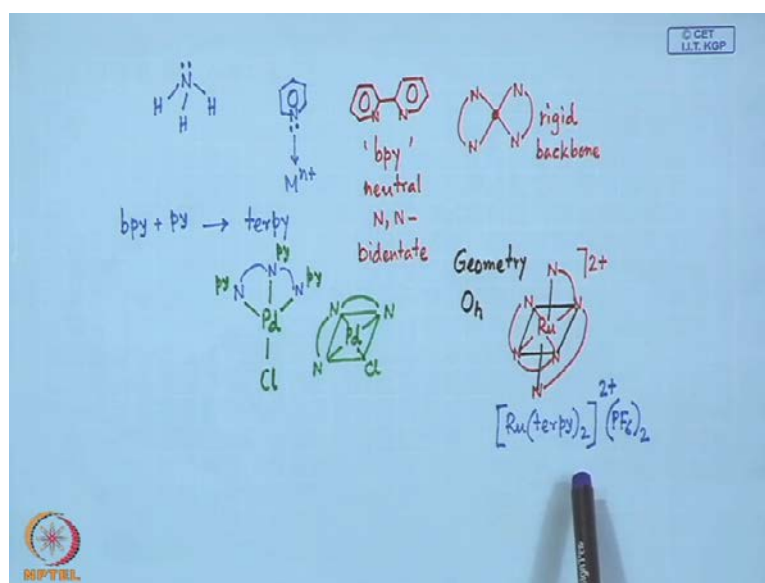 © CET
I.I.T. KGP
N
H H
H
N
M^n+
N N
'bpy'
neutral
N, N-
bidentate
N N
N N
rigid
backbone
bpy + py → terpy
py
py N py
N N
Pd
Cl
N N
Pd
N Cl
Geometry
Oh
N ]2+
N N
Ru
N N
N
[Ru(terpy)2]^2+ (PF6)2
NPTEL